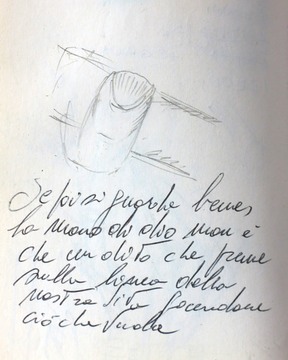 Se poi si guarda bene,
la mano di dio non è
che un dito che preme
sulla linea della
nostra vita facendone
ciò che vuole